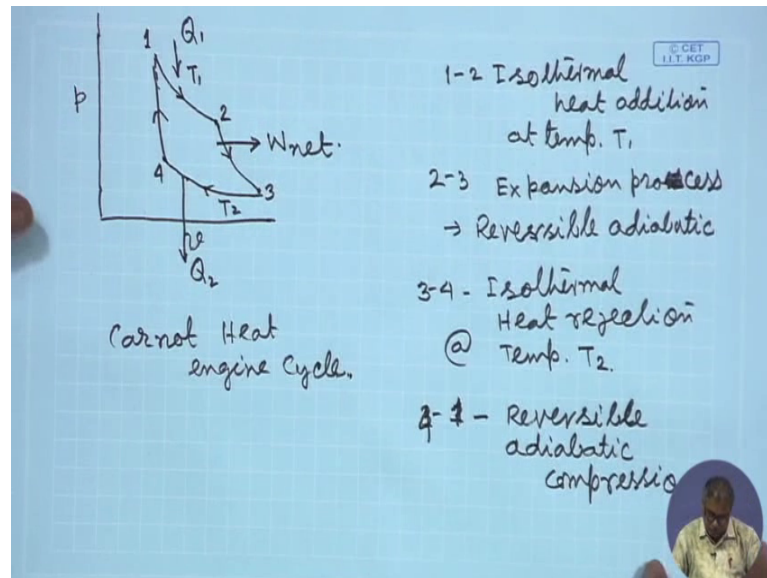 1
Q₁
T₁
p
2
Wnet.
4
T₂
3
v
Q₂
Carnot Heat
engine Cycle.
© CET
I.I.T. KGP
1-2 Isothermal
heat addition
at temp. T₁
2-3 Expansion process
→ Reversible adiabatic
3-4 - Isothermal
Heat rejection
@ Temp. T₂.
4-1 - Reversible
adiabatic
compressio